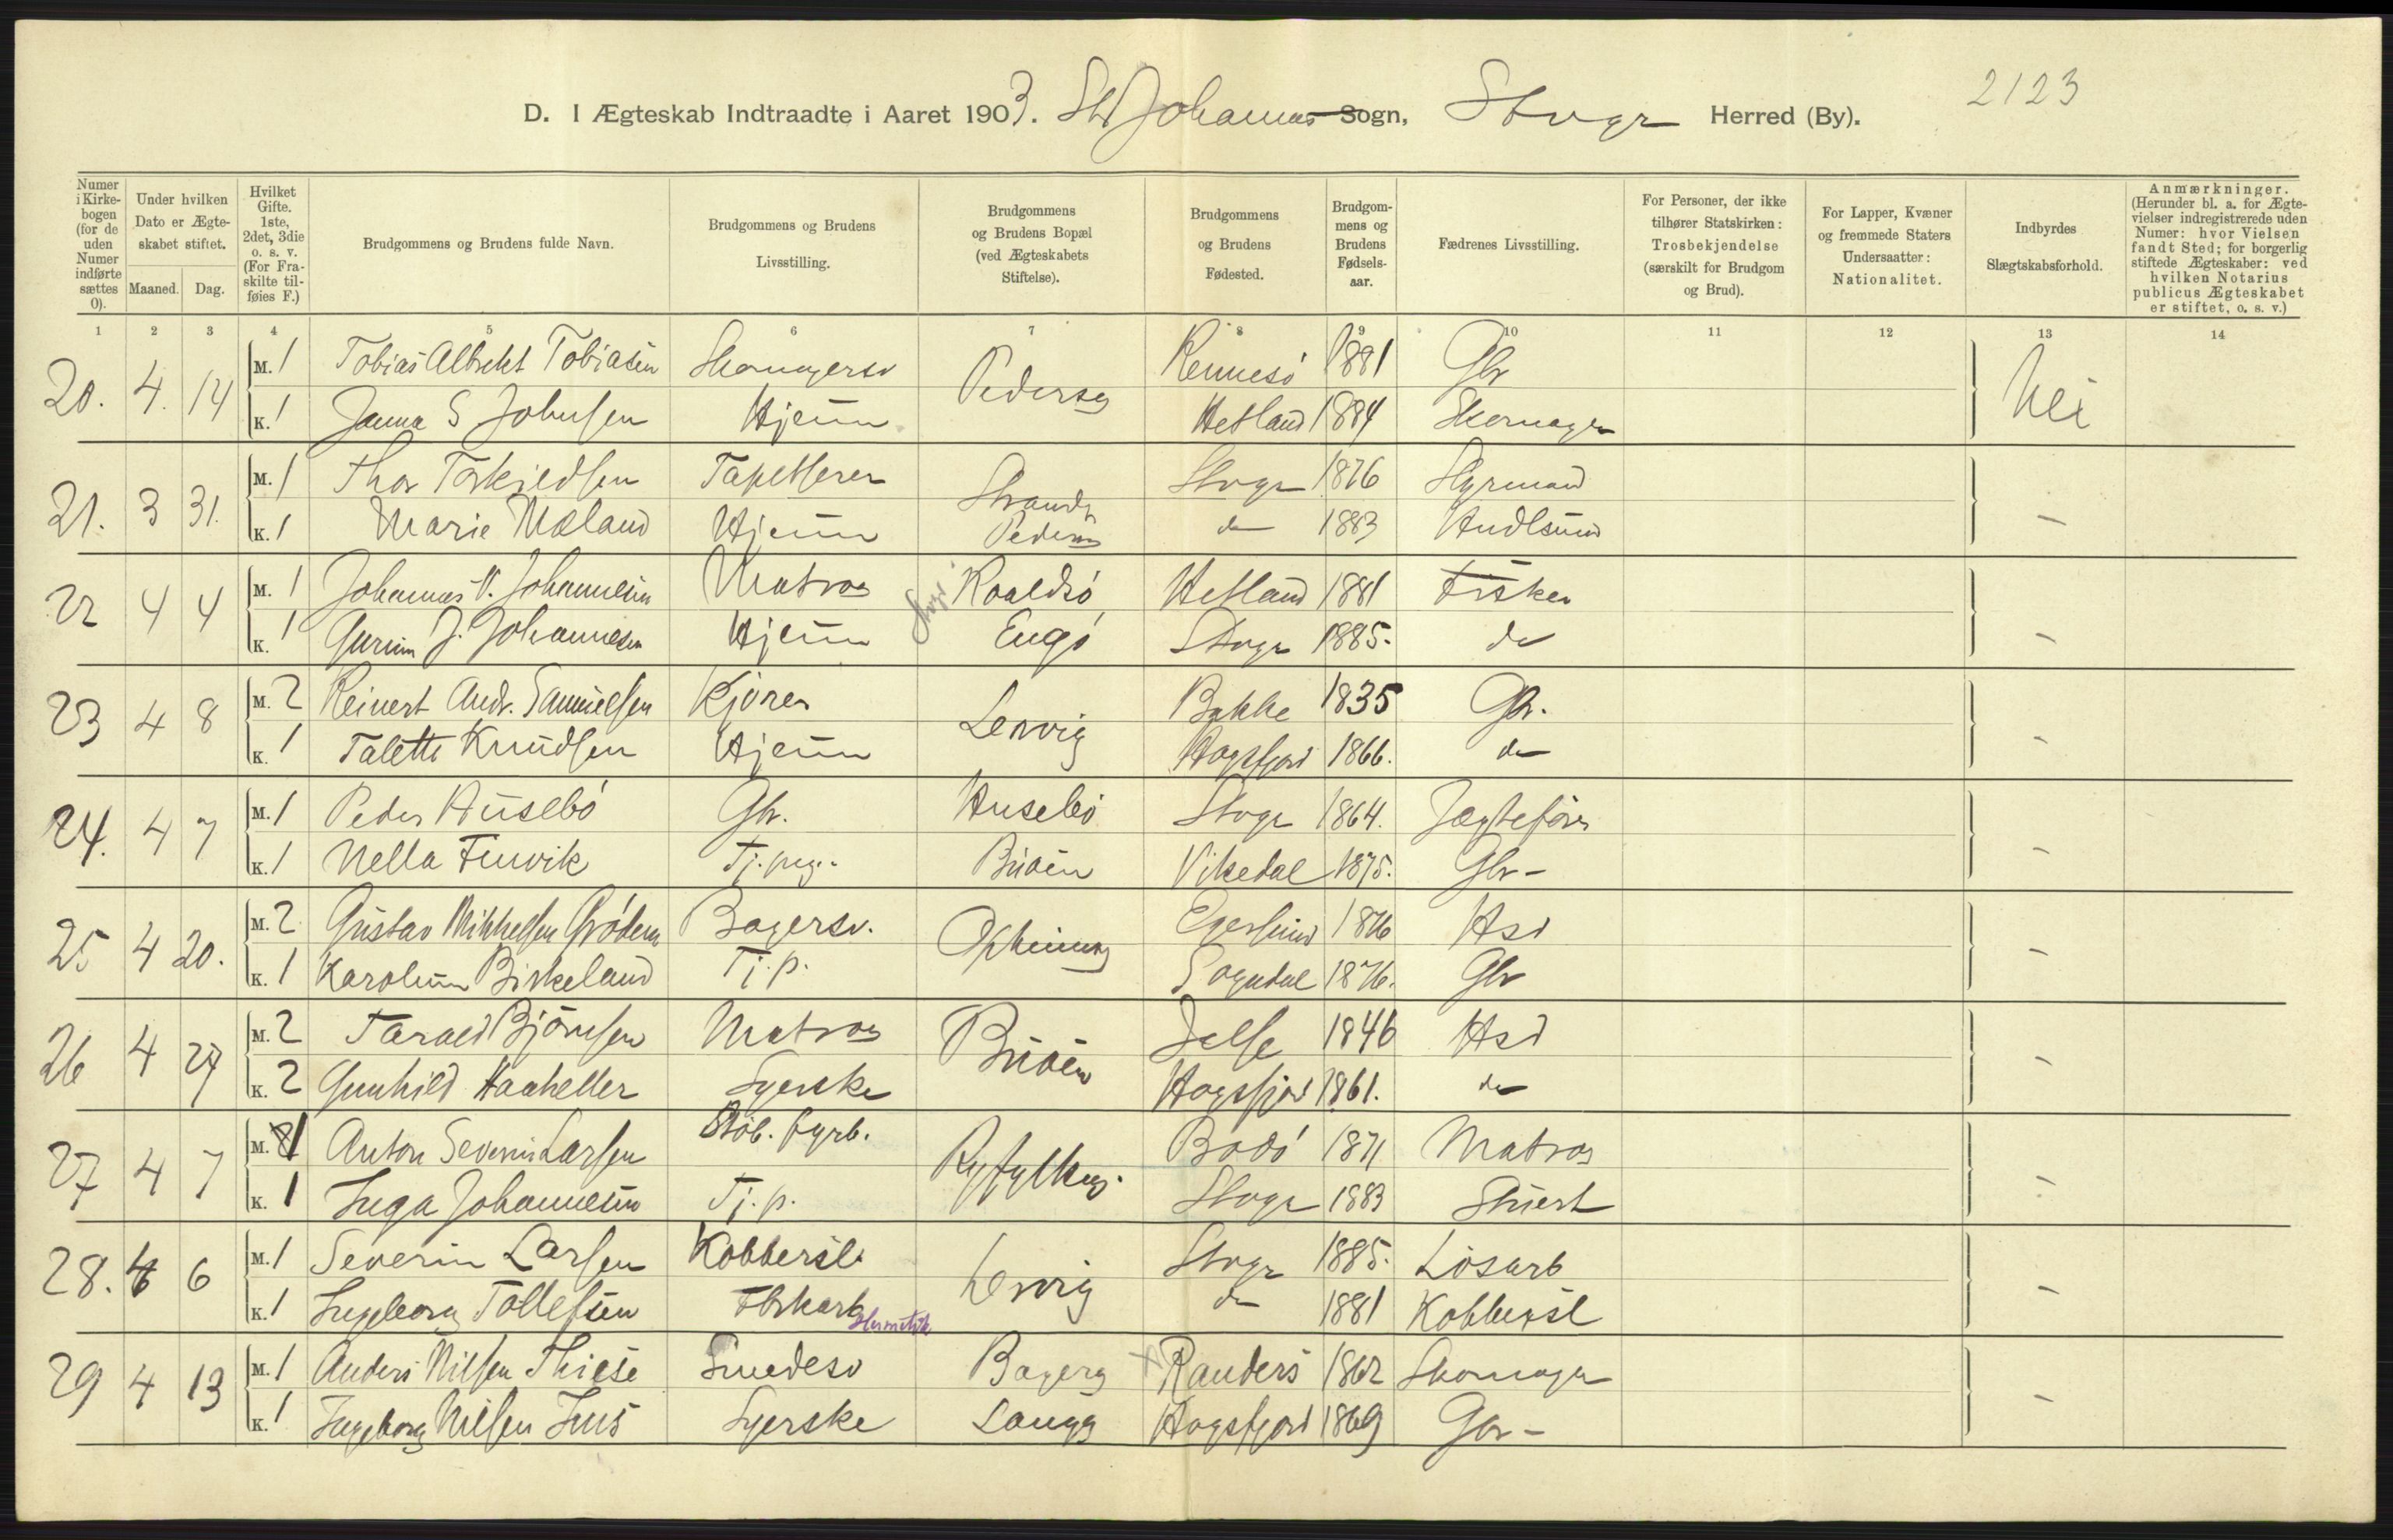 2123
D. I Ægteskab Indtraadte i Aaret 1903. St Johannes Sogn, Stvgr Herred (By).
Numer i Kirkebogen (for de uden Numer indførte sættes 0).
Under hvilken Dato er Ægteskabet stiftet.
Maaned. Dag.
Hvilket Gifte. 1ste, 2det, 3die o. s. v. (For Fraskilte tilføies F.)
Brudgommens og Brudens fulde Navn.
Brudgommens og Brudens Livsstilling.
Brudgommens og Brudens Bopæl (ved Ægteskabets Stiftelse).
Brudgommens og Brudens Fødested.
Brudgommens og Brudens Fødselsaar.
Fædrenes Livsstilling.
For Personer, der ikke tilhører Statskirken: Trosbekjendelse (særskilt for Brudgom og Brud).
For Lapper, Kvæner og fremmede Staters Undersaatter: Nationalitet.
Indbyrdes Slægtskabsforhold.
Anmærkninger. (Herunder bl. a. for Ægtevielser indregistrerede uden Numer: hvor Vielsen fandt Sted; for borgerlig stiftede Ægteskaber: ved hvilken Notarius publicus Ægteskabet er stiftet, o. s. v.)
1 2 3 4 5 6 7 8 9 10 11 12 13 14
20. 4. 14 M. 1 Tobias Albrekt Tobiasen Skomagersv Pedersg Rennesö 1881 Gbr Nei
K. 1 Janna S Johnsen Hjem Hetland 1884 Skomager
21. 3 31. M. 1 Thor Torkjeldsen Tapetserer Strandg Stvgr 1876 Styrmand –
K. 1 Marie Mæland Hjem Pedersg do 1883 Hndlsmd
22 4 4 M. 1 Johannes V. Johannesen Matros Roaldsö Hetland 1881 Fisker –
K. 1 Gurine J. Johannesen Hjem Engö Stvgr 1885. do
23 4 8 M. 2 Reinert Andr. Samuelsen Kjörer Lervig Bakke 1835 Gbr. –
K. 1 Talette Knudsen Hjem Høgsfjord 1866. do
24. 4 7 M. 1 Peder Husebö Gbr. Husebö Stvgr 1864. Jægtefører –
K. 1 Nella Finvik Tj. pige. Buøen Vikedal 1875. Gbr –
25 4 20. M. 2 Gustav Mikkelsen Grödem Bagersv. Opheimsg Egersund 1876 Hsd –
K. 1 Karoline Birkeland Tj. p. Sogndal 1876. Gbr
26 4 27 M. 2 Tarald Björnsen Matros Buøen Jelse 1846 Hsd –
K. 2 Gunhild Haaheller Syerske Høgsfjord 1861. do
27 4 7 M. 1 Anton Severin Larsen Støb. fyrb. Ryfylkeg. Bodö 1871 Matros –
K. 1 Inga Johannesen Tj. p. Stvgr 1883 Stuert
28. 4 6 M. 1 Severin Larsen Kobbersl. Lervig Stvgr 1885. Løsarb –
K. 1 Ingeborg Tollefsen Fbrkarb Hermetik do 1881 Kobbersl
29 4 13 M. 1 Anders Nilsen Thiese Smedesv Bagerg Randers 1862 Skomager –
K. 1 Ingeborg Nilsen Ims Syerske Langg Høgsfjord 1869 Gbr –